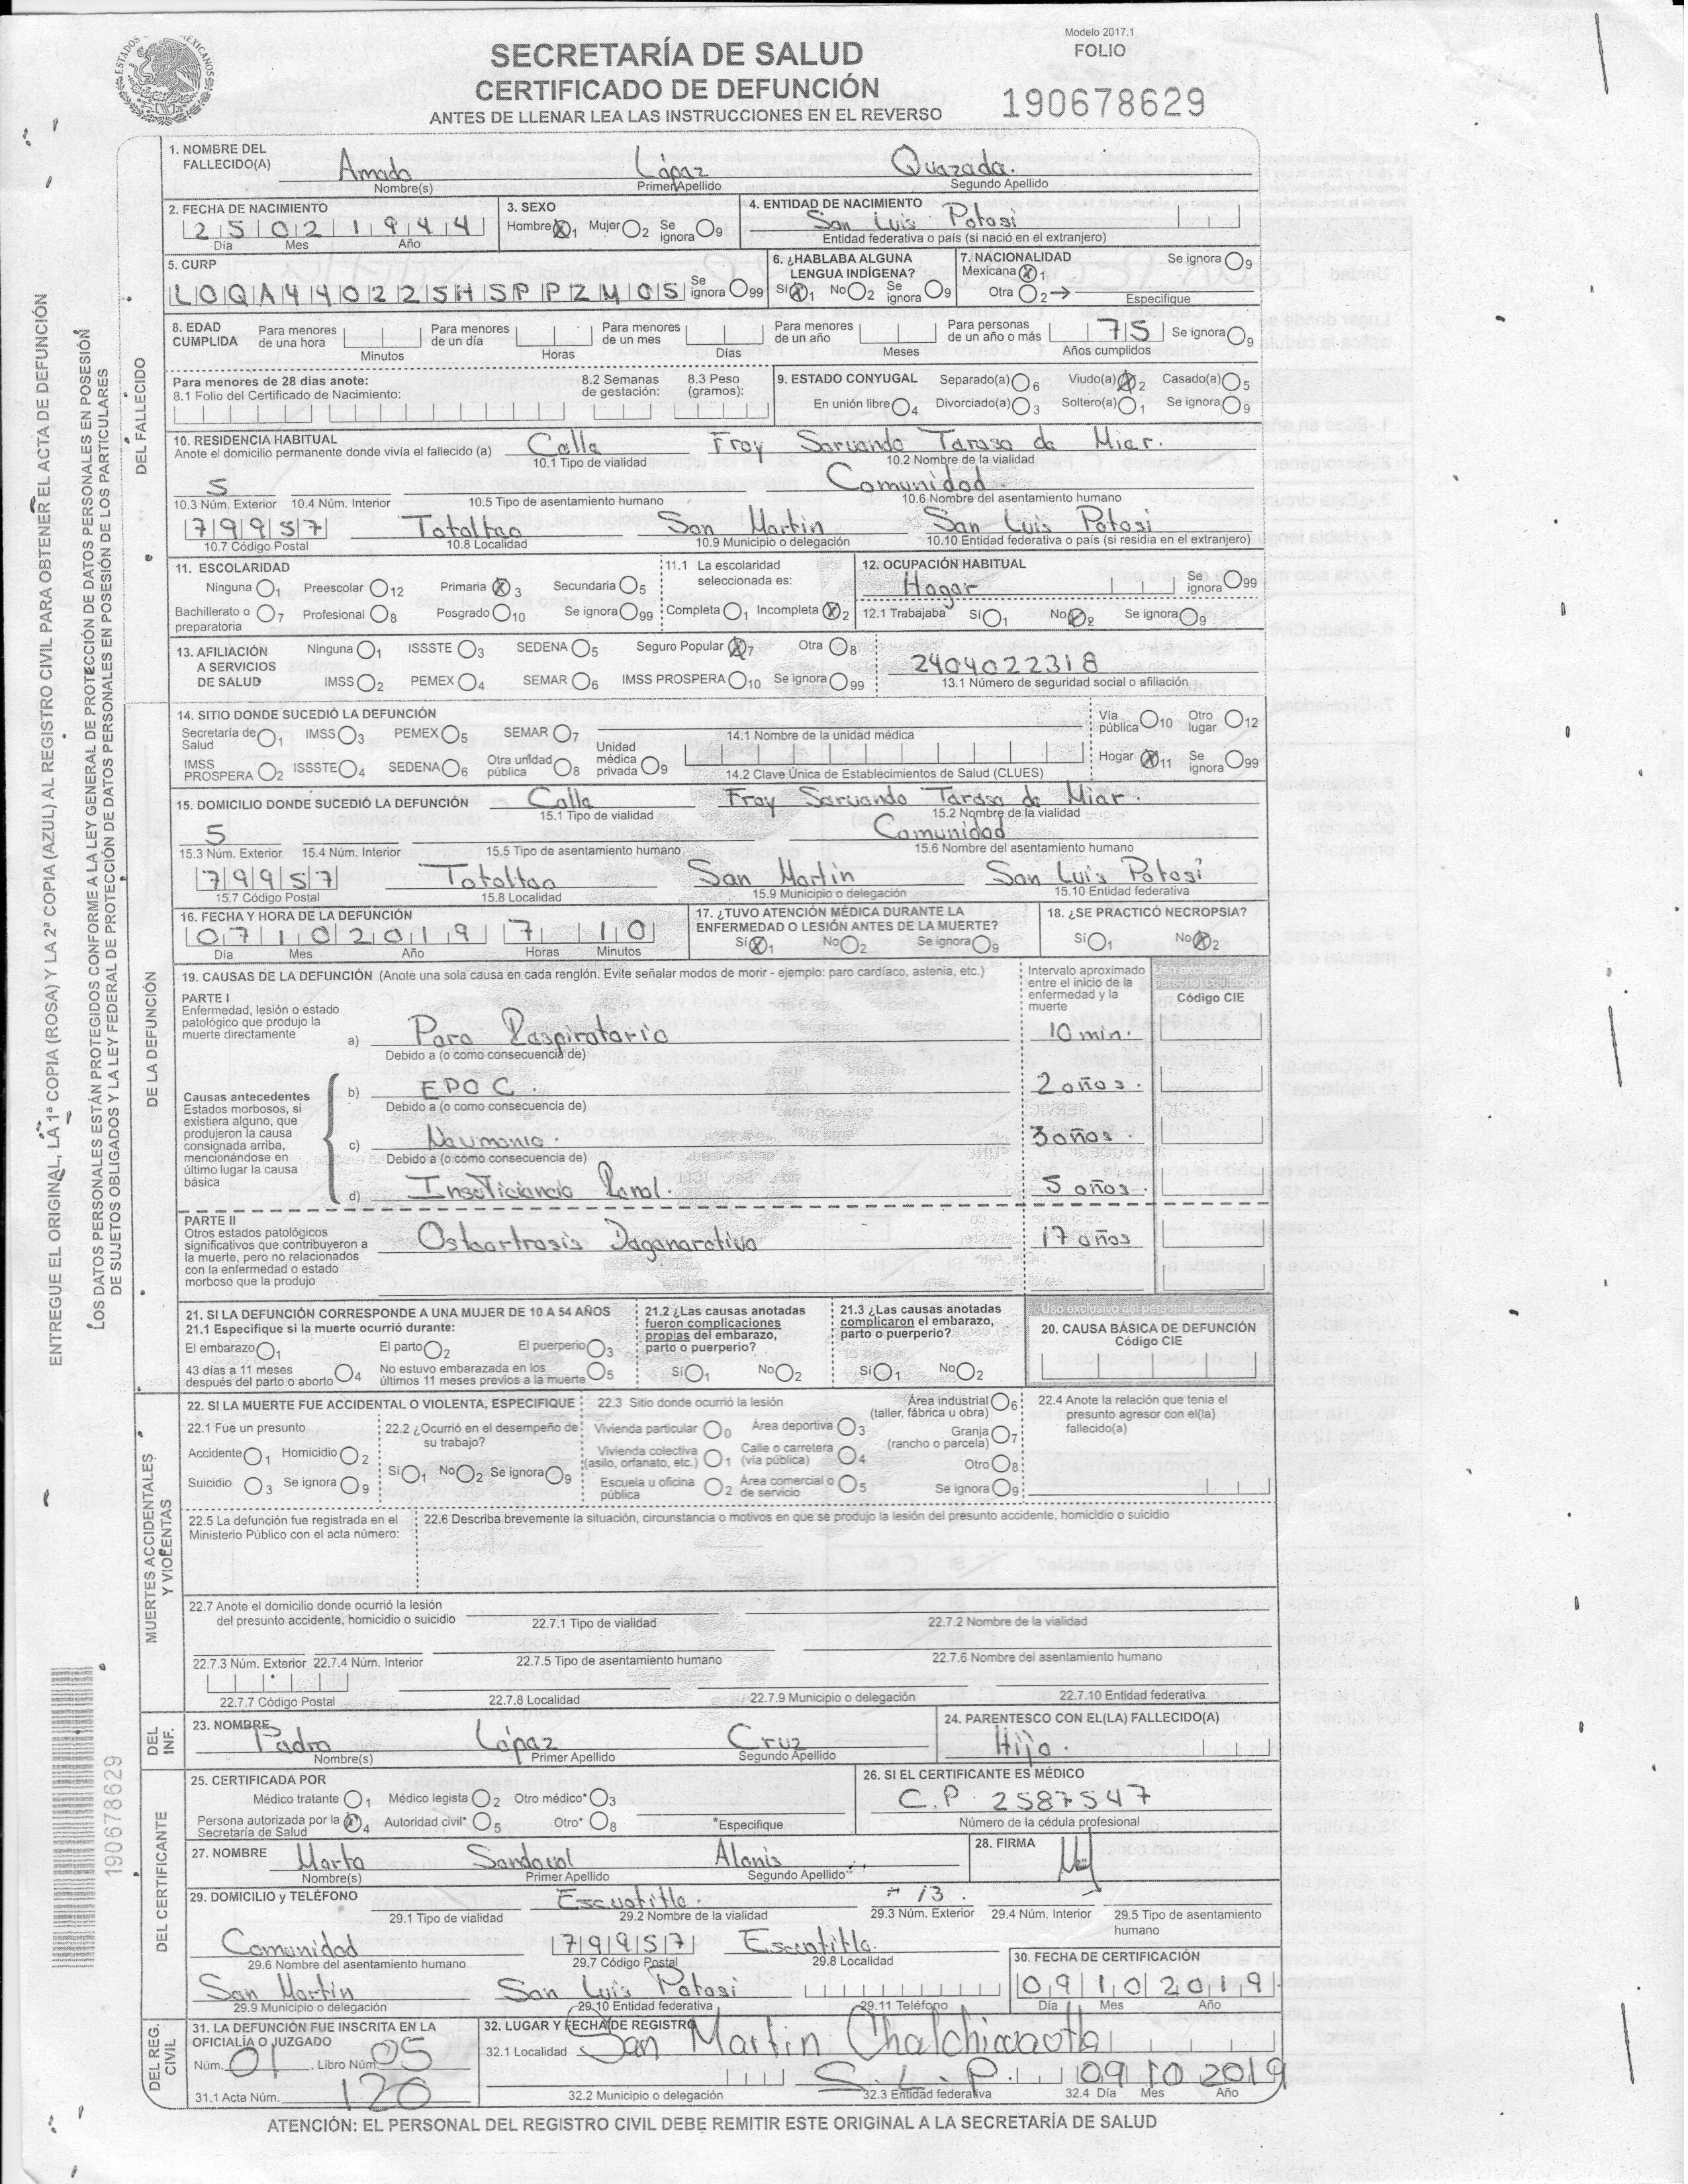 Modelo 2017.1
FOLIO
190678629
ESTADOS UNIDOS MEXICANOS
SECRETARÍA DE SALUD
CERTIFICADO DE DEFUNCIÓN
ANTES DE LLENAR LEA LAS INSTRUCCIONES EN EL REVERSO
ENTREGUE EL ORIGINAL, LA 1ª COPIA (ROSA) Y LA 2ª COPIA (AZUL) AL REGISTRO CIVIL PARA OBTENER EL ACTA DE DEFUNCIÓN
LOS DATOS PERSONALES ESTÁN PROTEGIDOS CONFORME A LA LEY GENERAL DE PROTECCIÓN DE DATOS PERSONALES EN POSESIÓN
DE SUJETOS OBLIGADOS Y LA LEY FEDERAL DE PROTECCIÓN DE DATOS PERSONALES EN POSESIÓN DE LOS PARTICULARES
DEL FALLECIDO
1. NOMBRE DEL FALLECIDO(A) Amado López Quezada.
Nombre(s) Primer Apellido Segundo Apellido
2. FECHA DE NACIMIENTO 25 02 1944
Día Mes Año
3. SEXO
Hombre X 1 Mujer 2 Se ignora 9
4. ENTIDAD DE NACIMIENTO San Luis Potosí
Entidad federativa o país (si nació en el extranjero)
5. CURP
LOQA440225HSPPZM05 Se ignora 99
6. ¿HABLABA ALGUNA LENGUA INDÍGENA?
Sí X 1 No 2 Se ignora 9
7. NACIONALIDAD Se ignora 9
Mexicana X 1
Otra 2 → Especifique
8. EDAD CUMPLIDA Para menores de una hora Minutos Para menores de un día Horas Para menores de un mes Días Para menores de un año Meses Para personas de un año o más 75 Años cumplidos Se ignora 9
Para menores de 28 dias anote:
8.1 Folio del Certificado de Nacimiento: 8.2 Semanas de gestación: 8.3 Peso (gramos):
9. ESTADO CONYUGAL Separado(a) 6 Viudo(a) X 2 Casado(a) 5
En unión libre 4 Divorciado(a) 3 Soltero(a) 1 Se ignora 9
10. RESIDENCIA HABITUAL
Anote el domicilio permanente donde vivía el fallecido (a) Calle Fray Servando Teresa de Mier.
10.1 Tipo de vialidad 10.2 Nombre de la vialidad
5 Comunidad
10.3 Núm. Exterior 10.4 Núm. Interior 10.5 Tipo de asentamiento humano 10.6 Nombre del asentamiento humano
79957 Totolteo San Martin San Luis Potosi
10.7 Código Postal 10.8 Localidad 10.9 Municipio o delegación 10.10 Entidad federativa o país (si residia en el extranjero)
11. ESCOLARIDAD
Ninguna 1 Preescolar 12 Primaria X 3 Secundaria 5
Bachillerato o preparatoria 7 Profesional 8 Posgrado 10 Se ignora 99
11.1 La escolaridad seleccionada es:
Completa 1 Incompleta X 2
12. OCUPACIÓN HABITUAL
Hogar Se ignora 99
12.1 Trabajaba Sí 1 No X 2 Se ignora 9
13. AFILIACIÓN A SERVICIOS DE SALUD
Ninguna 1 ISSSTE 3 SEDENA 5 Seguro Popular X 7 Otra 8
IMSS 2 PEMEX 4 SEMAR 6 IMSS PROSPERA 10 Se ignora 99
2404022318
13.1 Número de seguridad social o afiliación
DE LA DEFUNCIÓN
14. SITIO DONDE SUCEDIÓ LA DEFUNCIÓN
Secretaría de Salud 1 IMSS 3 PEMEX 5 SEMAR 7
IMSS PROSPERA 2 ISSSTE 4 SEDENA 6 Otra unidad pública 8 Unidad médica privada 9
14.1 Nombre de la unidad médica
14.2 Clave Única de Establecimientos de Salud (CLUES)
Vía pública 10 Otro lugar 12
Hogar X 11 Se ignora 99
15. DOMICILIO DONDE SUCEDIÓ LA DEFUNCIÓN Calle Fray Servando Teresa de Mier.
15.1 Tipo de vialidad 15.2 Nombre de la vialidad
5 Comunidad
15.3 Núm. Exterior 15.4 Núm. Interior 15.5 Tipo de asentamiento humano 15.6 Nombre del asentamiento humano
79957 Totolteo San Martin San Luis Potosi
15.7 Código Postal 15.8 Localidad 15.9 Municipio o delegación 15.10 Entidad federativa
16. FECHA Y HORA DE LA DEFUNCIÓN
07 10 2019 7 10
Día Mes Año Horas Minutos
17. ¿TUVO ATENCIÓN MÉDICA DURANTE LA ENFERMEDAD O LESIÓN ANTES DE LA MUERTE?
Sí X 1 No 2 Se ignora 9
18. ¿SE PRACTICÓ NECROPSIA?
Sí 1 No X 2
19. CAUSAS DE LA DEFUNCIÓN (Anote una sola causa en cada renglón. Evite señalar modos de morir - ejemplo: paro cardíaco, astenia, etc.)
Intervalo aproximado entre el inicio de la enfermedad y la muerte
Uso exclusivo del personal codificador
Código CIE
PARTE I
Enfermedad, lesión o estado patológico que produjo la muerte directamente
a) Paro Respiratorio 10 min.
Debido a (o como consecuencia de)
Causas antecedentes
Estados morbosos, si existiera alguno, que produjeron la causa consignada arriba, mencionándose en último lugar la causa básica
b) EPOC. 2 años.
Debido a (o como consecuencia de)
c) Neumonia. 3 años.
Debido a (o como consecuencia de)
d) Insuficiencia Renal. 5 años.
PARTE II
Otros estados patológicos significativos que contribuyeron a la muerte, pero no relacionados con la enfermedad o estado morboso que la produjo
Osteartrosis Degenerativa 17 años
21. SI LA DEFUNCIÓN CORRESPONDE A UNA MUJER DE 10 A 54 AÑOS
21.1 Especifique si la muerte ocurrió durante:
El embarazo 1 El parto 2 El puerperio 3
43 días a 11 meses después del parto o aborto 4 No estuvo embarazada en los últimos 11 meses previos a la muerte 5
21.2 ¿Las causas anotadas fueron complicaciones propias del embarazo, parto o puerperio?
Sí 1 No 2
21.3 ¿Las causas anotadas complicaron el embarazo, parto o puerperio?
Sí 1 No 2
Uso exclusivo del personal codificador
20. CAUSA BÁSICA DE DEFUNCIÓN
Código CIE
MUERTES ACCIDENTALES Y VIOLENTAS
22. SI LA MUERTE FUE ACCIDENTAL O VIOLENTA, ESPECIFIQUE
22.1 Fue un presunto
Accidente 1 Homicidio 2
Suicidio 3 Se ignora 9
22.2 ¿Ocurrió en el desempeño de su trabajo?
Sí 1 No 2 Se ignora 9
22.3 Sitio donde ocurrió la lesión
Vivienda particular 0 Área deportiva 3
Vivienda colectiva (asilo, orfanato, etc.) 1 Calle o carretera (vía pública) 4
Escuela u oficina pública 2 Área comercial o de servicio 5
Área industrial (taller, fábrica u obra) 6
Granja (rancho o parcela) 7
Otro 8
Se ignora 9
22.4 Anote la relación que tenia el presunto agresor con el(la) fallecido(a)
22.5 La defunción fue registrada en el Ministerio Público con el acta número:
22.6 Describa brevemente la situación, circunstancia o motivos en que se produjo la lesión del presunto accidente, homicidio o suicidio
22.7 Anote el domicilio donde ocurrió la lesión del presunto accidente, homicidio o suicidio
22.7.1 Tipo de vialidad 22.7.2 Nombre de la vialidad
22.7.3 Núm. Exterior 22.7.4 Núm. Interior 22.7.5 Tipo de asentamiento humano 22.7.6 Nombre del asentamiento humano
22.7.7 Código Postal 22.7.8 Localidad 22.7.9 Municipio o delegación 22.7.10 Entidad federativa
DEL INF.
23. NOMBRE Pedro López Cruz
Nombre(s) Primer Apellido Segundo Apellido
24. PARENTESCO CON EL(LA) FALLECIDO(A)
Hijo.
190678629
DEL CERTIFICANTE
25. CERTIFICADA POR
Médico tratante 1 Médico legista 2 Otro médico* 3
Persona autorizada por la Secretaría de Salud X 4 Autoridad civil* 5 Otro* 8 *Especifique
26. SI EL CERTIFICANTE ES MÉDICO
C.P. 2587547
Número de la cédula profesional
27. NOMBRE Marta Sandoval Alonis
Nombre(s) Primer Apellido Segundo Apellido
28. FIRMA
29. DOMICILIO y TELÉFONO Escuatitla. # 13.
29.1 Tipo de vialidad 29.2 Nombre de la vialidad 29.3 Núm. Exterior 29.4 Núm. Interior 29.5 Tipo de asentamiento humano
Comunidad 79957 Escuatitla.
29.6 Nombre del asentamiento humano 29.7 Código Postal 29.8 Localidad
San Martin San Luis Potosi
29.9 Municipio o delegación 29.10 Entidad federativa 29.11 Teléfono
30. FECHA DE CERTIFICACIÓN
09 10 2019
Día Mes Año
DEL REG. CIVIL
31. LA DEFUNCIÓN FUE INSCRITA EN LA OFICIALÍA O JUZGADO
Núm. 01 Libro Núm. 05
31.1 Acta Núm. 120
32. LUGAR Y FECHA DE REGISTRO
32.1 Localidad San Martin Chalchicuautla
S.L.P. 09 10 2019
32.2 Municipio o delegación 32.3 Entidad federativa 32.4 Día Mes Año
ATENCIÓN: EL PERSONAL DEL REGISTRO CIVIL DEBE REMITIR ESTE ORIGINAL A LA SECRETARÍA DE SALUD